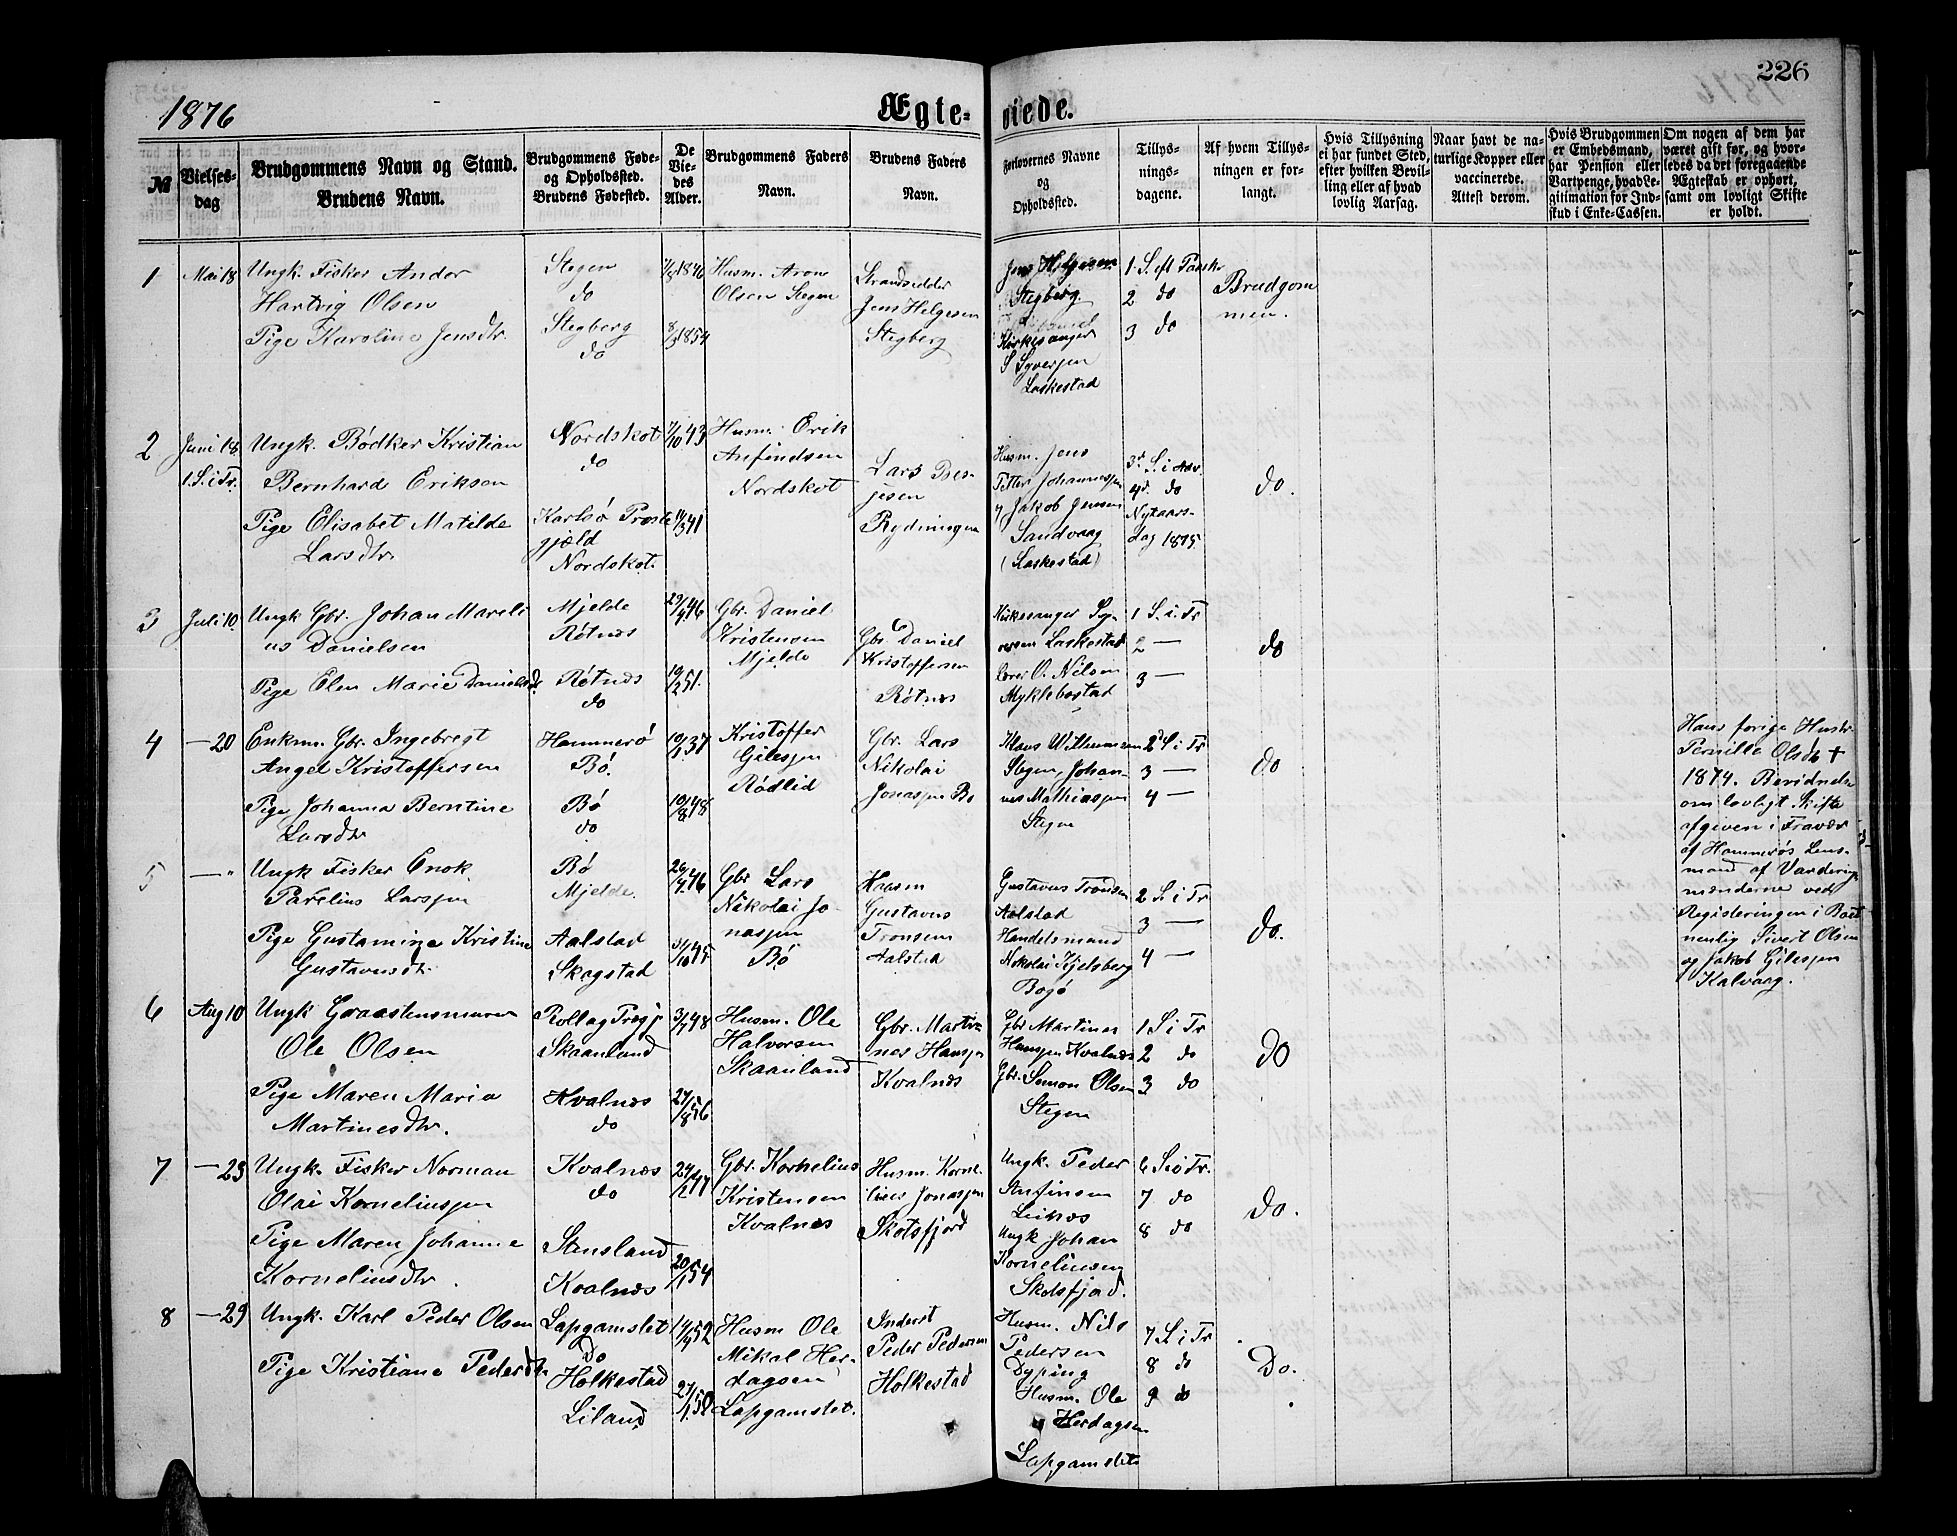 226
1876
Ægte-
viede.
№
Vielses-
dag
Brudgommens Navn og Stand.
Brudens Navn.
Brudgommens Føde-
og Opholdssted.
Brudens Fødested.
De
Vie-
des
Alder.
Brudgommens Faders
Navn.
Brudens Faders
Navn.
Forlovernes Navne
og
Opholdssted.
Tillys-
nings-
dagene.
Af hvem Tillys-
ningen er for-
langt.
Hvis Tillysning
ei har fundet Sted,
efter hvilken Bevil-
ling eller af hvad
lovlig Aarsag.
Naar havt de na-
turlige Kopper eller
vaccinerede.
Attest derom.
Hvis Brudgommen
er Embedsmand,
har Pension eller
Vartpenge, hvad Le-
gitimation for Ind-
skud i Enke-Cassen.
Om nogen af dem har
været gift før, og hvor-
ledes da det foregaaende
Ægteskab er ophørt,
samt om lovligt Skifte
er holdt.
1
Mai 18
Ungk. Fisker Andor
Hartvig Olsen
Pige Karoline Jensdtr.
Stegen
do
Stegberg
do
1846
8/3 1854
Husm. Aron
Olsen Stegen
Strandsidder
Jens Helgesen
Stegberg
Jens Helgesen
Stegberg
Kirkesanger
S Syversen
Laskestad
1. S. eft Paaske
2 do
3 do
Brudgom
men.
2
Juni 18
1. S. i Tr.
Ungk. Bødker Kristian
Bernhard Eriksen
Pige Elisabet Matilde
Larsdtr.
Nordskot
do
Karlsø Præste
gjæld
Nordskot.
/10 43
/3 41
Husm. Erik
Anfindsen
Nordskot
Lars
Rydningen
Husm. Jens
Petter Johannessen
Jakob Jensen
Sandvaag
(Laskestad)
3d S. i Adv.
4d. do
Nytaars-
dag 1875.
do.
3
Juli 10.
Ungk Gbr. Johan Mareli
us Danielsen
Pige Elen Marie Danielsdtr
Mjelde
Røtnes
Røtnæs
do
29/9 46
10/2 51.
Gbr. Daniel
Kristensen
Mjelde
Gbr Daniel
Kristoffersen
Røtnæs
Kirkesanger Sy-
versen Laskestad
Lærer O. Nilsen
Myklebostad
1 S. i Tr
2 —
3 —
do
4
— 20
Enkm. Gbr. Ingebregt
Angel Kristoffersen
Pige Johanna Berntine
Larsdtr
Hammerø
Bø.
Bø
do
10/1 37
10/8 48
Kristoffer
Gilesjen
Rødlid
Gbr. Lars
Nikolai
Jonassen Bø
Klaus Willumsen
Stegen, Johan-
nes Mathiassen
Stegen
2d S i Tr
3 —
4 —
do
Hans forige Hustr
Pernille Olsdtr †
1874.
om lovligt Skifte
afgiven i Fravær
af Hammerøs Lens-
mand af Vurderings
mændene ved
Registeringen i Boet
nemlig Sivert Olsen
og Jakob Gilesjen
Kalvaag.
5
— "
Ungk Fisker Enok
Parelius Larssen
Pige Gustamine Kristine
Gustavusdtr.
Bø
Mjelde.
Aalstad
Skagstad
46
/10 45
Gbr Lars
Nikolai Jo-
nassen
Bø
Husm
Gustavus
Tronsen
Aalstad
Gustavus Tronsen
Aalstad
Handelsmand
Nikolai Kjelsberg
Bogø
2 S i Tr
3 —
4 —
do.
6
Aug 10
Ungk Graastensmurer
Ole Olsen
Pige Maren Maria
Martinesdtr.
Rollag Prægj
Skaanland
Kvalnæs
do
3/7 48
27/8 56
Husm. Ole
Halvorsen
Skaanland
Gbr. Marti-
nes Hansen
Kvalnæs
Gbr Martines
Hansen Kvalnæs
Gbr. Simon Olsen
Stegen
1 S i Tr
2 do
3 do
do
7
— 23
Ungk. Fisker Norman
Olai Korneliussen
Pige Maren Johanne
Korneliusdtr.
Kvalnæs
do
Stensland
Kvalnæs
24/2 47
20/1 54
Gbr. Kornelius
Kristensen
Kvalnæs
Husm. Korne-
lius Jonassen
Skotsfjord
Ungk. Peder
Anfinsen
Leinæs
Ungk Johan
Korneliusen
Skotsfjord.
6 S i Tr.
7 do
8 do
do.
8
— 29
Ungk. Karl Peder Olsen
Pige Kristiane Pedersdtr.
Lapgamslet
Do
Holkestad
Liland
14/9 52
27/1 50
Husm Ole
Mikal Her-
dagsen
Lapgamslet.
Inderst
Peder Pedersen
Holkestad
Husm. Nils
Pedersen
Dyping
Husm. Ole
Herdagsen
Lapgamslet
7 S i Tr
8 do
9 do
Do.